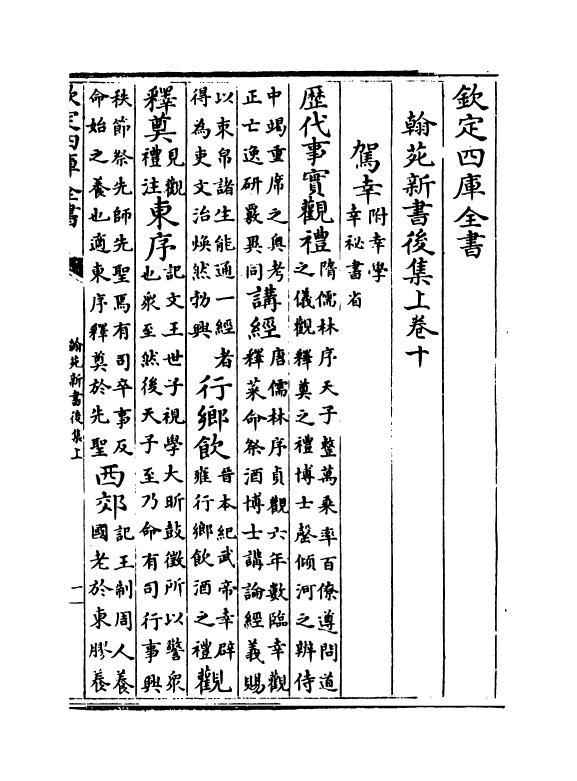 欽定四庫全書
翰苑新書後集上卷十
駕幸附幸學
幸祕書省
歴代事實觀禮隋儒林序天子整萬乗率百僚遵問道
之儀觀釋奠之禮博士罄傾河之辨侍
中竭重席之奥考
正亡逸研覈異同
講經唐儒林序貞觀六年數臨幸觀
釋菜命祭酒博士講論經義賜
以束帛諸生能通一經者
得為吏文治煥然勃興
行鄉飲晉本紀武帝幸辟
雍行鄉飲酒之禮
觀
釋奠見觀
禮注
東序記文王世子視學大昕鼓徵所以警衆
也衆至然後天子至乃命有司行事興
秩節祭先師先聖焉有司卒事反
命始之養也適東序釋奠於先聖
西郊記王制周人養
國老於東膠養
欽定四庫全書
翰苑新書後集上
一